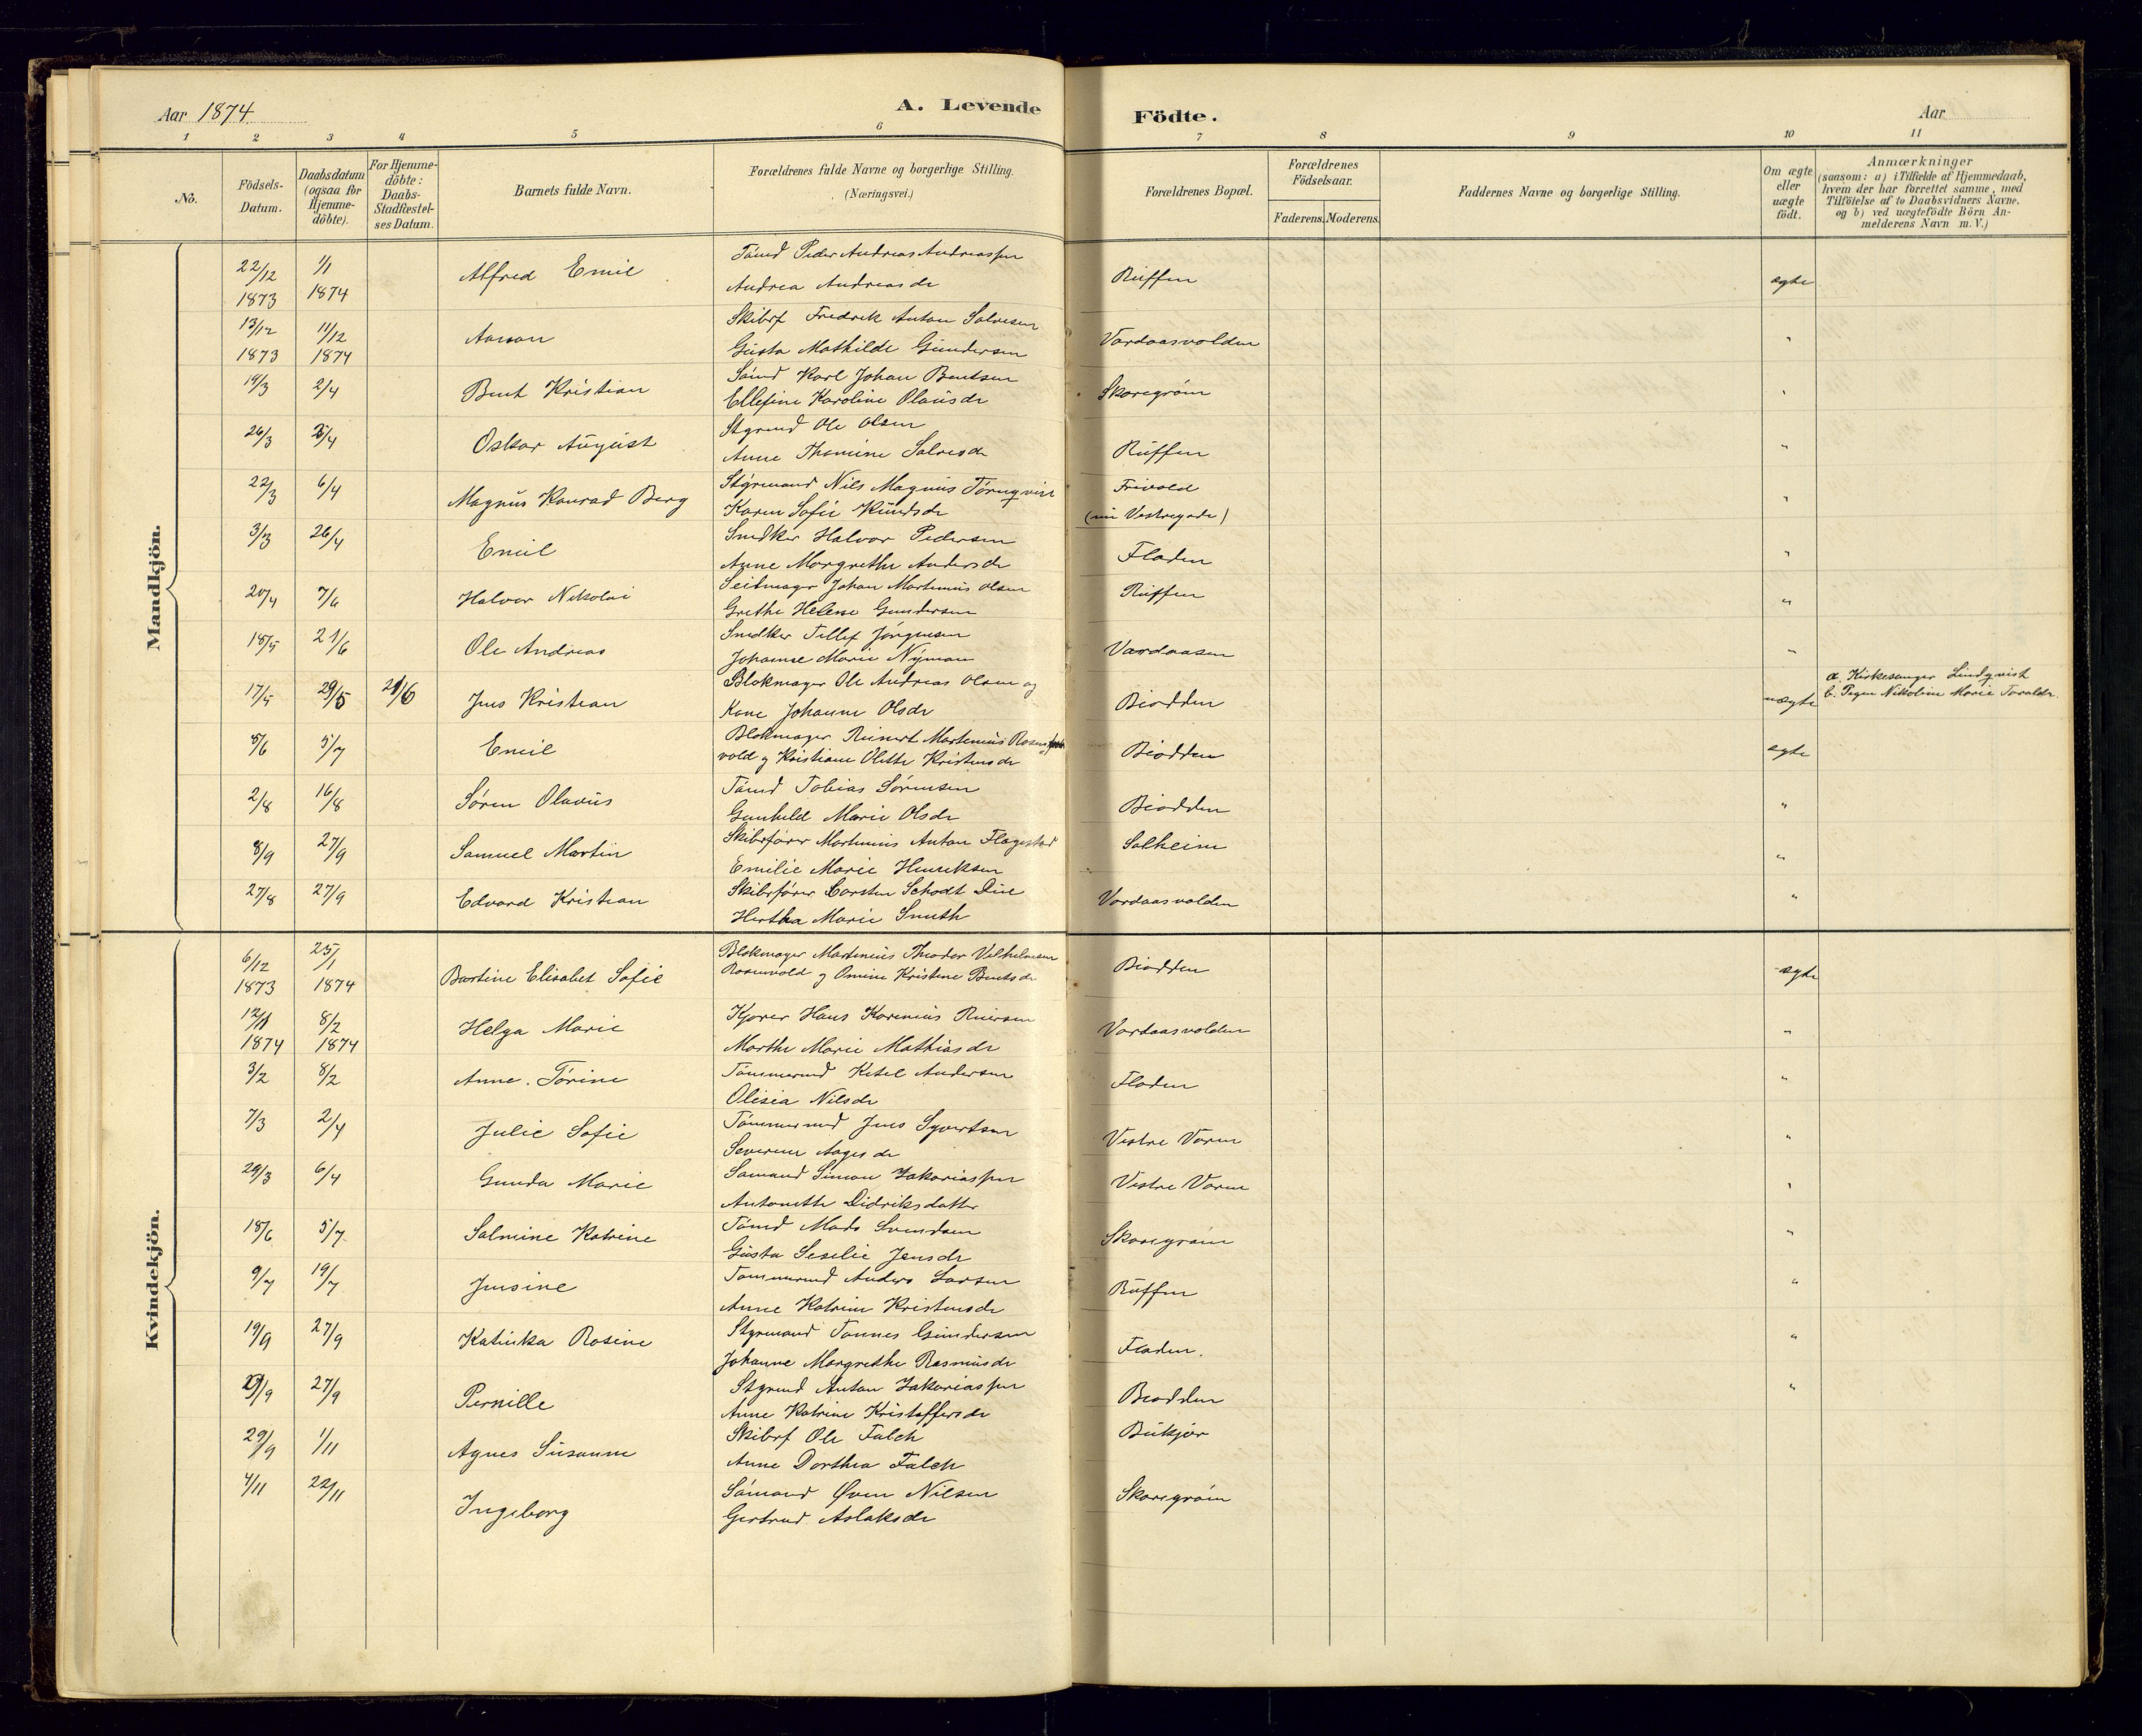 Aar 1874.
A. Levende Födte.
Aar
1 2 3 4 5 6 7 8 9 10 11
No.
Födsels-Datum.
Daabsdatum (ogsaa for Hjemme-döbte).
For Hjemme-döbte: Daabs-Stadfæstel-ses Datum.
Barnets fulde Navn.
Forældrenes fulde Navne og borgerlige Stilling. (Næringsvei.)
Forældrenes Bopæl.
Forældrenes Födselsaar.
Faderens. Moderens.
Faddernes Navne og borgerlige Stilling.
Om ægte eller uægte födt.
Anmærkninger
(saasom: a) i Tilfælde af Hjemmedaab,
hvem der har forrettet samme, med
Tilföielse af to Daabsvidners Navne,
og b) ved uægtefödte Börn An-
melderens Navn m. V.)
Mandkjön.
22/12 1873 1/1 1874 Alfred Emil Tømd Peder Andreas Andreassen Ruffen ægte
Andrea Andreasdr
13/12 1873 11/12 1874 Aanon Skibsf Fredrik Anton Salvesen Vardaasvolden "
Gusta Mathilde Gundersen
19/3 2/4 Bent Kristian Sømd Karl Johan Bentsen Skaregrøm "
Ellefine Karoline Olausdr
26/3 5/4 Oskar August Styrmd Ole Olsen Ruffen "
Anne Thomine Salvesdr
22/3 6/4 Magnus Konrad Berg Styrmand Nils Magnus Törnqvist Frivold "
Karen Sofie Knudsdr (nu Vestregade)
3/3 26/4 Emil Snedker Halvor Pedersen Fladen "
Anne Margrethe Andersdr
20/4 7/6 Halvor Nikolai Seilmager Johan Martinius Olsen Ruffen "
Grethe Helene Gundersen
18/5 21/6 Ole Andreas Snedker Tellef Jörgensen Vardaasen "
Johanne Marie Nyman
17/5 29/5 21/6 Jens Kristian Blokmager Ole Andreas Olsen og Biodden uægte a. Kirkesanger Lindqvist
Kone Johanne Olsdr b. Pigen Nikoline Marie Toraldr.
8/6 5/7 Emil Blokmager Reinert Martinius Rosen Biodden ægte
vold og Kristiane Olette Kristensdr
2/8 16/8 Søren Olavus Tømd Tobias Sørensen Biodden "
Gunhild Marie Olsdr
8/9 27/9 Samuel Martin Skibsfører Martinius Anton Flagestad Solheim "
Emilie Marie Henriksen
27/8 27/9 Edvard Kristian Skibsfører Carsten Schodt Due Vardaasvolden "
Hertha Marie Smith
Kvindekjön.
6/12 1873 25/1 1874 Bartine Elisabet Sofie Blokmager Martinius Theodor Vilhelmsen Biodden ægte
Rosenvold og Omine Kristine Bentsdr
12/1 1874 8/2 1874 Helga Marie Kjører Hans Karenius Reiersen Vardaasvolden "
Marthe Marie Mathiasdr
3/2 8/2 Anne Tørine Tømmermd Ketel Andersen Fladen "
Olisia Nilsdr
7/3 2/4 Julie Sofie Tømmermd Jens Syvertsen Vestre Voren "
Severine Aagesdr
29/3 6/4 Gunda Marie Sømand Simon Zakariassen Vestre Voren "
Antonette Didriksdatter
18/6 5/7 Salmine Katrine Tømd Mads Svendsen Skaregrøm "
Gusta Seselie Jensdr
9/7 19/7 Jensine Tømmermd Anders Larsen Ruffen "
Anne Katrine Kristensdr
19/9 27/9 Katinka Rosine Styrmand Tønnes Gundersen Fladen. "
Johanne Margrethe Rasmusdr
/9 27/9 Pernille Styrmd Anton Zakariassen Biodden "
Anne Katrine Kristoffersdr
29/9 1/11 Agnes Susanne Skibsf Ole Falch Bukjær
Anne Dorthea Falch
4/11 22/11 Ingeborg Sømand Even Nilsen Skaregrøm
Gertrud Aslaksdr